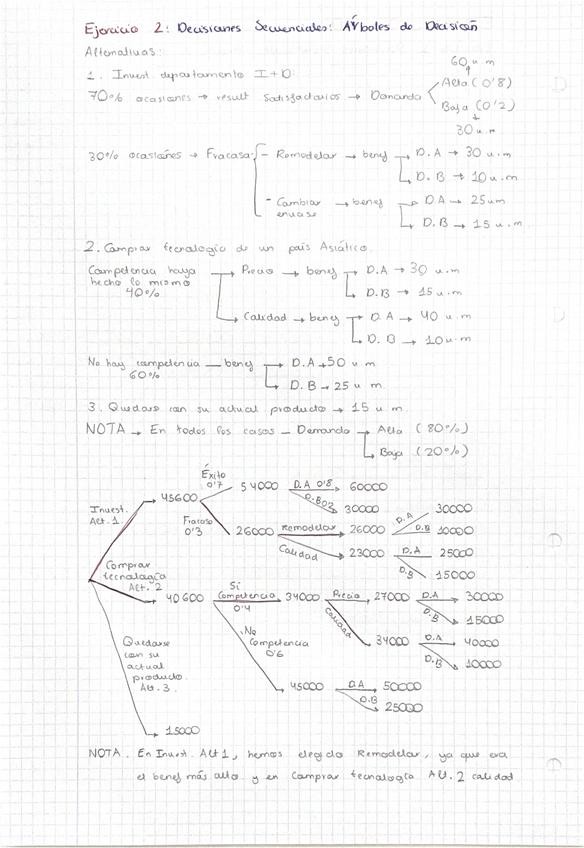 Ejercicio 2: Decisiones Secuenciales: Árboles de Decisión
Alternativas:
1. Invest. departamento I+D:
60 u.m
70% ocasiones → result satisfactorios → Demanda
Alta (0'8)
Baja (0'2)
30 u.m.
30% ocasiones → Fracasa:
- Remodelar → benef
D.A → 30 u.m
D.B → 10 u.m
- Cambiar envase → benef
D.A → 25um
D.B → 15 u.m
2. Comprar tecnología de un país Asiático.
Competencia haya hecho lo mismo 40%
Precio → benef
D.A → 30 u.m
D.B → 15 u.m
Calidad → benef
D.A → 40 u.m
D.B → 10u.m
No hay competencia — benef
60%
D.A → 50 u.m
D.B → 25 u.m
3. Quedarse con su actual producto → 15 u.m.
NOTA → En todos los casos — Demanda
Alta (80%)
Baja (20%)
Éxito
0'7
54000 D.A 0'8 60000
D.B 0'2 30000
Invest. Act. 1.
45600
Fracaso 0'3
26000 Remodelar 26000 D.A 30000
D.B 10000
Calidad 23000 D.A 25000
D.B 15000
Comprar tecnología Alt. 2
40600 Sí Competencia 0'4 34000 Precio 27000 D.A 30000
D.B 15000
Calidad 34000 D.A 40000
D.B 10000
No Competencia 0'6
45000 D.A 50000
D.B 25000
Quedarse con su actual producto. Alt. 3.
15000
NOTA. En Invest. Alt 1, hemos elegido Remodelar, ya que era
el benef más alto y en Comprar tecnología Alt. 2 calidad